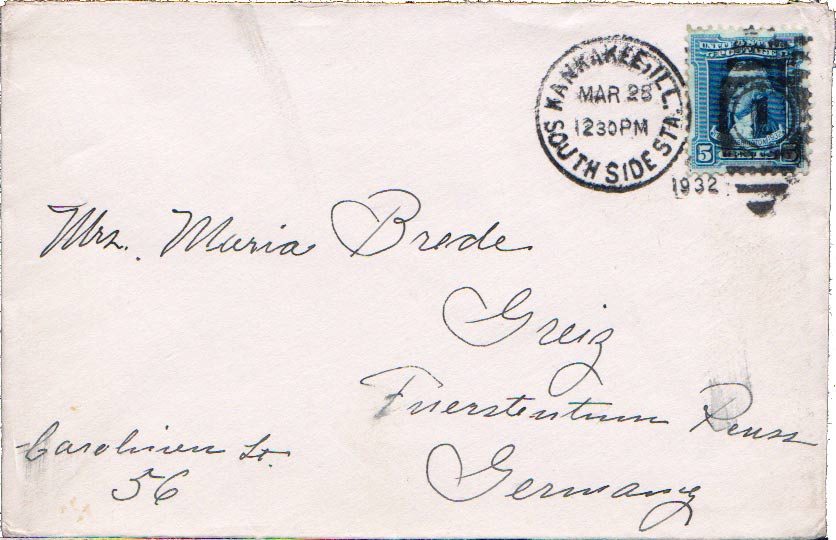 KANKAKEE, ILL.
MAR 28
1230PM
SOUTH SIDE STA.
1932
UNITED STATES
POSTAGE
5 5
1
Mrs. Maria Brede
Greiz
Fuerstentum Reuss
Germany
Carolinen St.
56